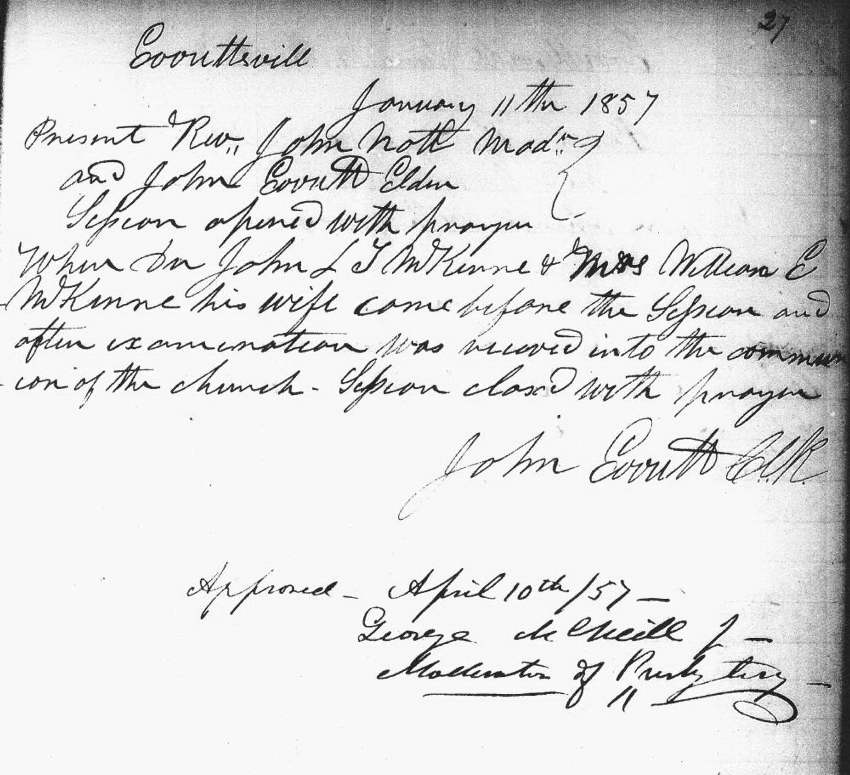 27
Everettsvill
January 11th 1857
Present Rev,, John Nott Modr
and John Everett Elder
Session opened with prayer
When Dr John L T McKinne & Mrs William E
McKinne his wife came before the Session and
after examination was recived into the commun
-ion of the church - Session closed with prayer
John Everett ClK.
Approved - April 10th /57 -
George McNeill J -
Moderator of Presbytery -